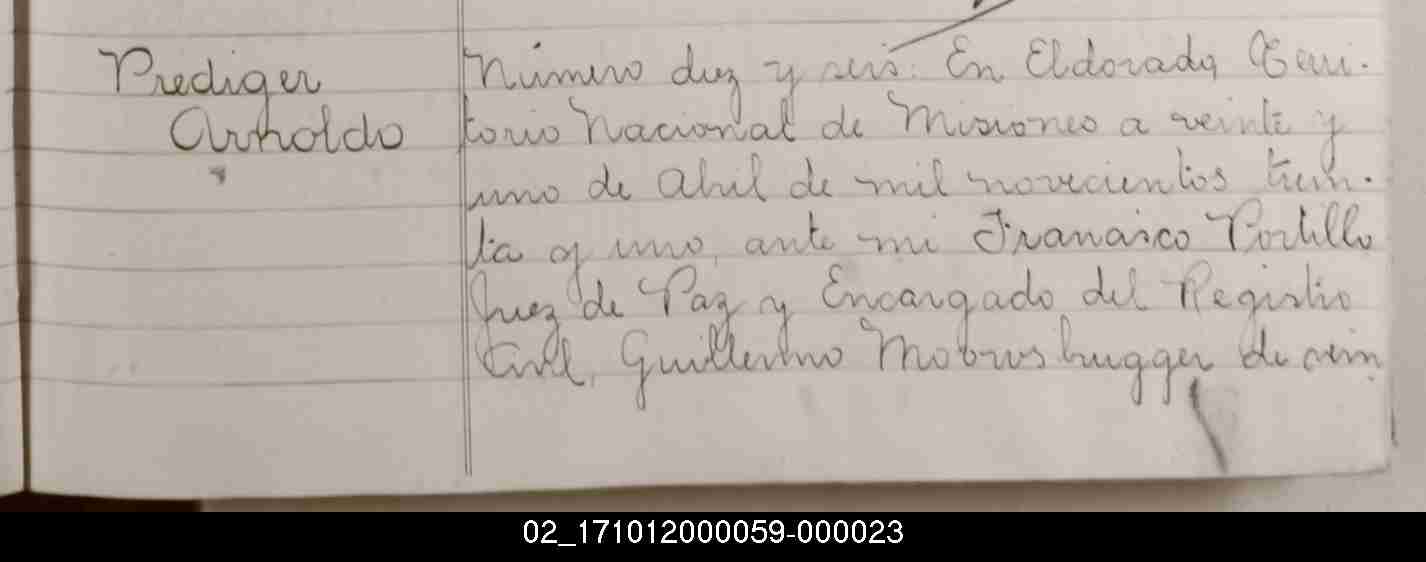 Prediger
Arnoldo
Número diez y seis: En Eldorado, Terri-
torio Nacional de Misiones a veinte y
uno de Abril de mil novecientos trein-
ta y uno, ante mi Francisco Portillo
Juez de Paz y Encargado del Registro
Civil, Guillermo de vein
02_171012000059-000023